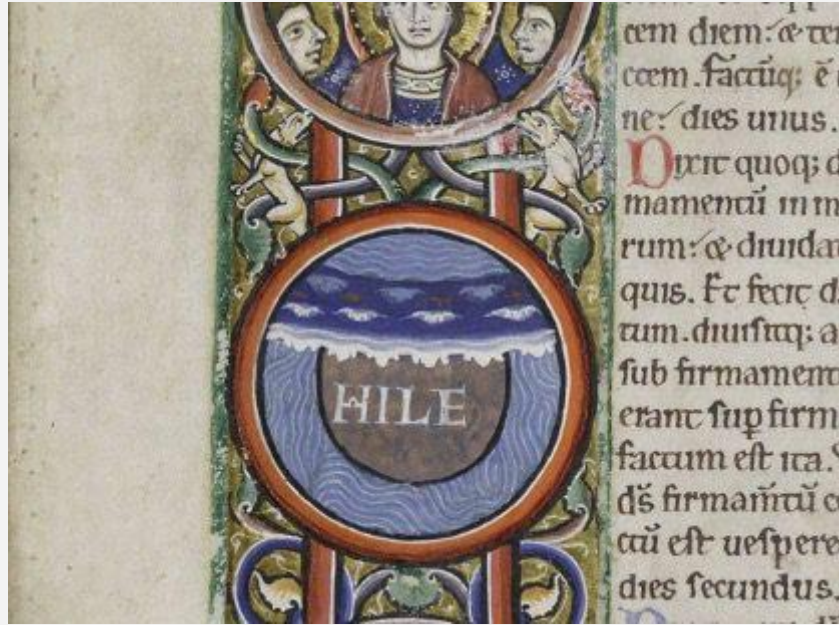 HILE
cem diem: & te
ccem. factūq; ē
ne: dies unus.
Dixit quoq; d
mamentū in m
rum: & diuida
quis. Et fecit d
tum. diuisitq; a
sub firmament
erant sup firm
factum est ita.
ds̄ firmam̄tū
ctū est uespere
dies secundus.